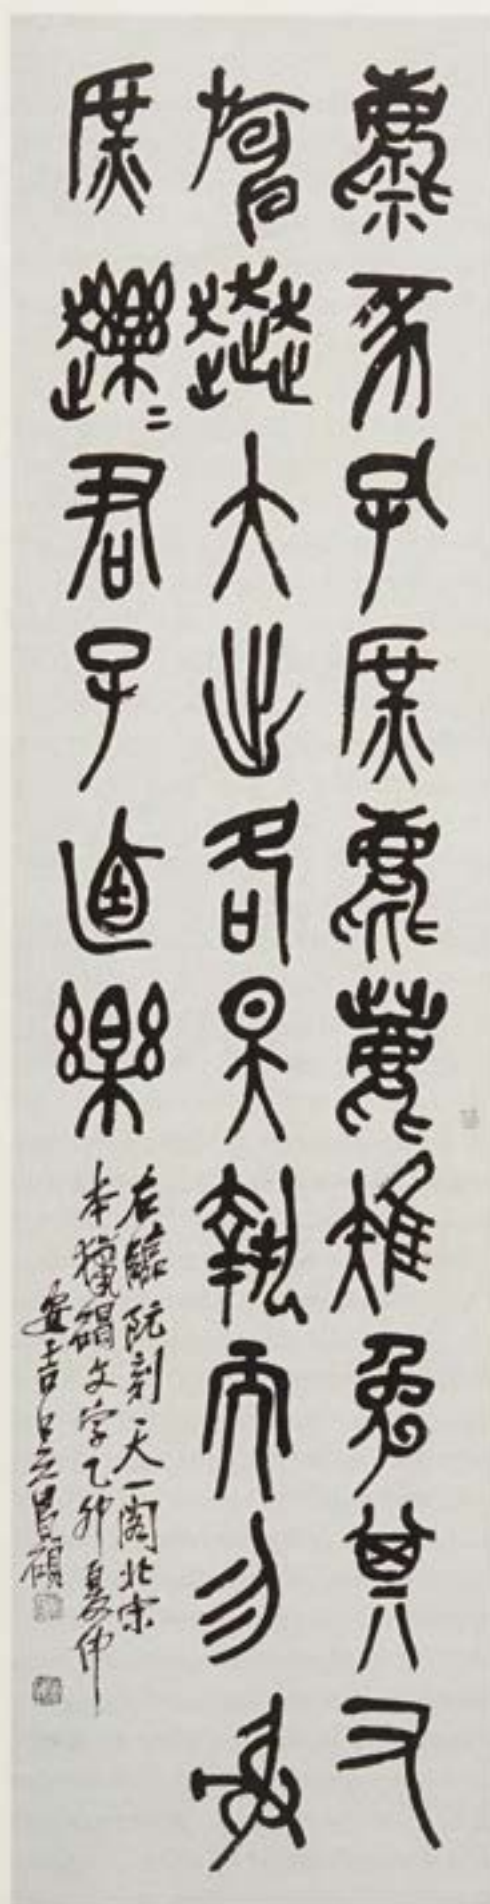 麋豕孔庶麀鹿雉兔其又
奔大出各昊執而勿射
庶君子逌樂
右臨阮刻天一閣北宋
本獵碣文字乙卯夏仲
安吉吳昌碩